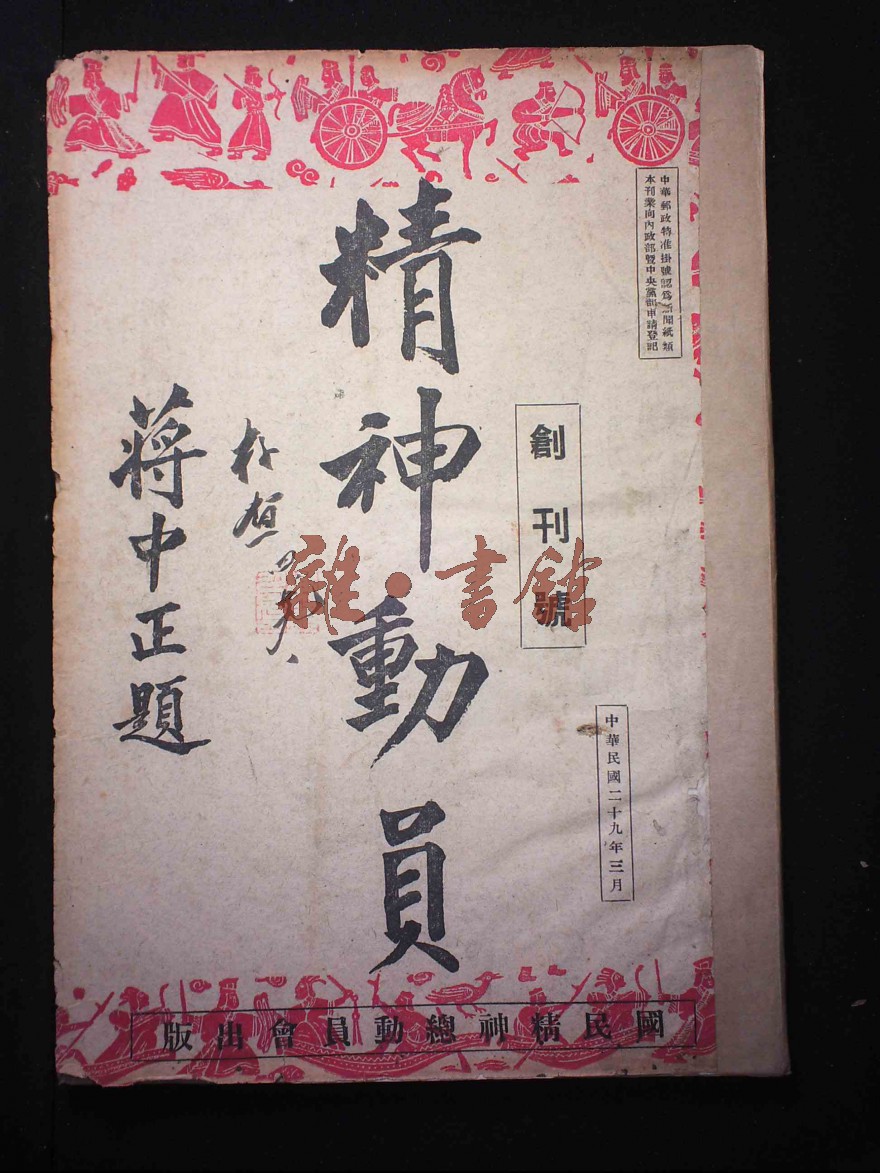 中華郵政特准掛號認爲新聞紙類
本刊業向內政部暨中央黨部申請登記
創刊號
中華民國二十九年三月
精神動員
蔣中正題
雜·書館
國民精神總動員會出版